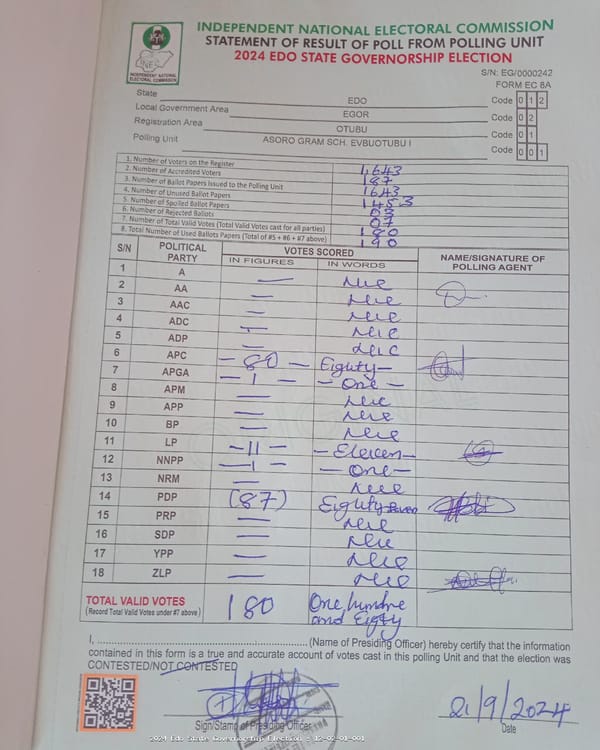 INDEPENDENT NATIONAL ELECTORAL COMMISSION
STATEMENT OF RESULT OF POLL FROM POLLING UNIT
2024 EDO STATE GOVERNORSHIP ELECTION
INEC
INDEPENDENT NATIONAL ELECTORAL COMMISSION
S/N: EG/0000242
FORM EC 8A
State EDO Code 0 1 2
Local Government Area EGOR Code 0 2
Registration Area OTUBU Code 0 1
Polling Unit ASORO GRAM SCH. EVBUOTUBU I Code 0 0 1
1. Number of Voters on the Register 1,643
2. Number of Accredited Voters 187
3. Number of Ballot Papers Issued to the Polling Unit 1643
4. Number of Unused Ballot Papers 1453
5. Number of Spoiled Ballot Papers 03
6. Number of Rejected Ballots 07
7. Number of Total Valid Votes (Total Valid Votes cast for all parties) 180
8. Total Number of Used Ballots Papers (Total of #5 + #6 + #7 above) 190
S/N POLITICAL PARTY VOTES SCORED NAME/SIGNATURE OF POLLING AGENT
IN FIGURES IN WORDS
1 A — Nil
2 AA — Nil
3 AAC — Nil
4 ADC — Nil
5 ADP — Nil
6 APC – 80 – Eighty –
7 APGA – 1 – – One –
8 APM — Nil
9 APP — Nil
10 BP — Nil
11 LP – 11 – – Eleven –
12 NNPP – 1 – – One –
13 NRM — Nil
14 PDP (87) Eighty seven
15 PRP — Nil
16 SDP — Nil
17 YPP — Nil
18 ZLP — Nil
TOTAL VALID VOTES 180 One hundre
(Record Total Valid Votes under #7 above) and Eigty
I, ............................ (Name of Presiding Officer) hereby certify that the information
contained in this form is a true and accurate account of votes cast in this polling Unit and that the election was
CONTESTED/NOT CONTESTED
21/9/2024
Sign/Stamp of Presiding Officer Date
2024 Edo State Governorship Election - 12-02-01-001